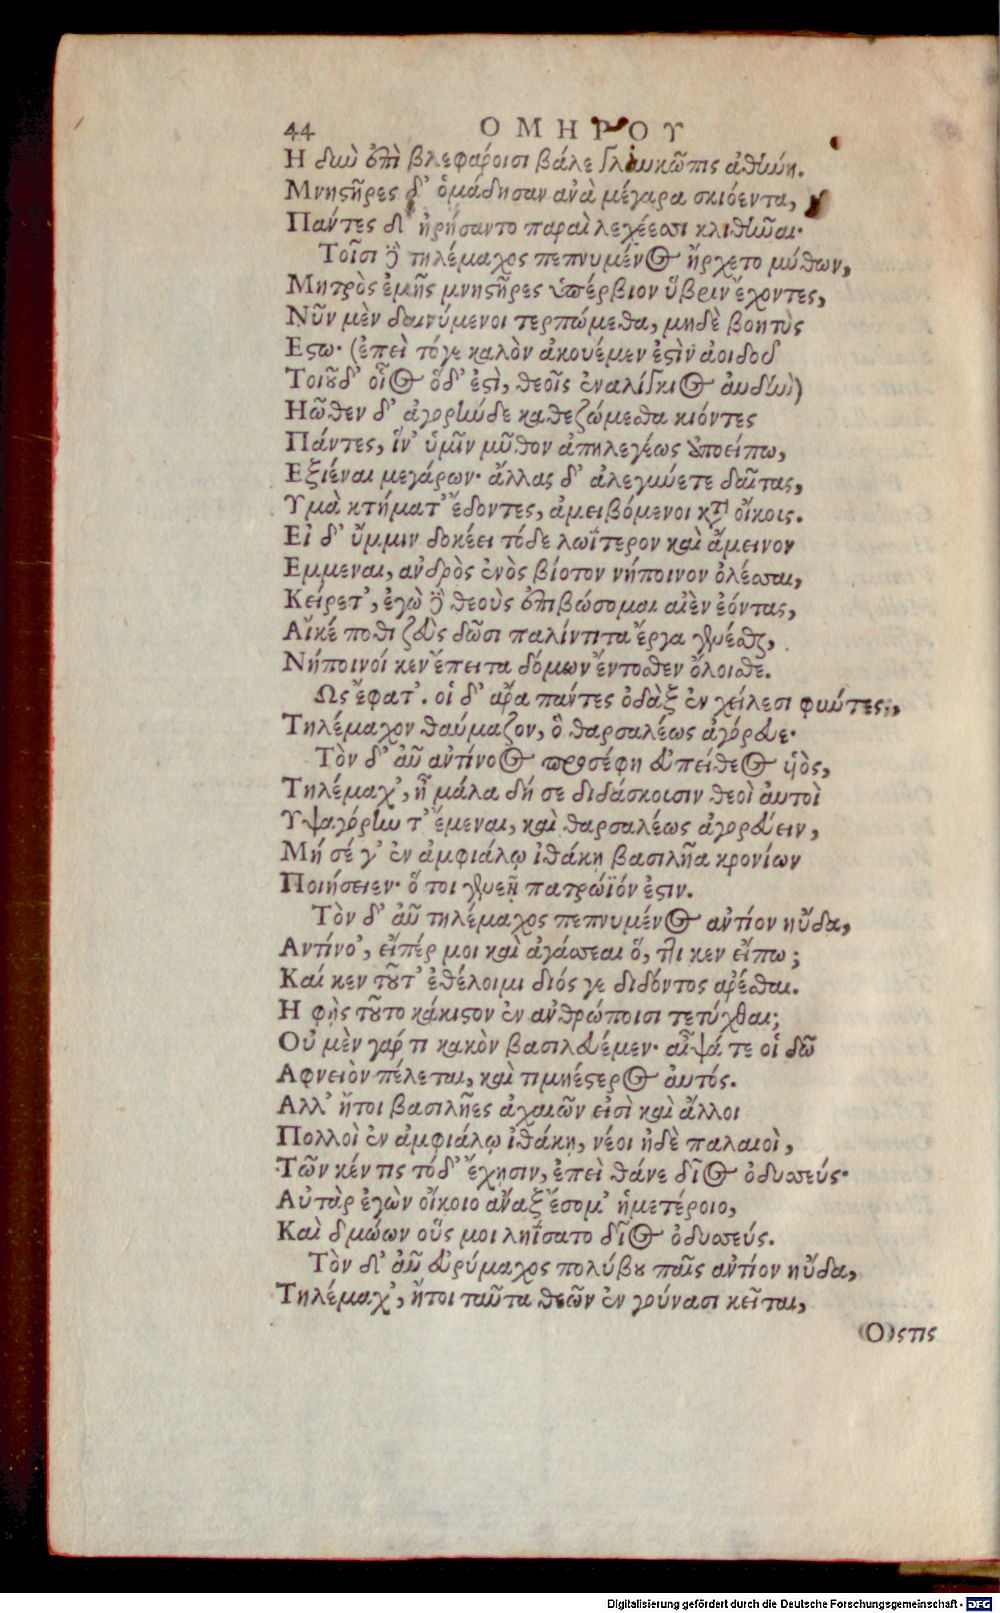 44 ΟΜΗΡΟΥ
Η δὺν ἐπὶ βλεφάροισι βάλε γλαυκῶπις ἀθήνη.
Μνηςῆρες δ' ὁμάδησαν ἀνὰ μέγαρα σκιόεντα,
Πάντες δ' ἠρήσαντο παραὶ λεχέεσσι κλιθῆναι·
Τοῖσι δὲ τηλέμαχος πεπνυμένος ἤρχετο μύθων,
Μητρὸς ἐμῆς μνηςῆρες ὑπέρβιον ὕβριν ἔχοντες,
Νῦν μὲν δαινύμενοι τερπώμεθα, μηδὲ βοητὺς
Εςω· (ἐπεὶ τόγε καλὸν ἀκουέμεν ἐςὶν ἀοιδοῦ
Τοιοῦδ' οἷος ὅδ' ἐςὶ, θεοῖς ἐναλίγκιος αὐδὴν)
Ηῶθεν δ' ἀγορήνδε καθεζώμεσθα κιόντες
Πάντες, ἵν' ὑμῖν μῦθον ἀπηλεγέως ἀποείπω,
Εξιέναι μεγάρων· ἄλλας δ' ἀλεγύνετε δαῖτας,
Υμὰ κτήματ' ἔδοντες, ἀμειβόμενοι κατὰ οἴκοις.
Εἰ δ' ὔμμιν δοκέει τόδε λωΐτερον καὶ ἄμεινον
Εμμεναι, ἀνδρὸς ἑνὸς βίοτον νήποινον ὀλέσσαι,
Κείρετ', ἐγὼ δὲ θεοὺς ἐπιβώσομαι αἰὲν ἐόντας,
Αἴκέ ποθι ζεὺς δῶσι παλίντιτα ἔργα γενέσθαι,
Νήποινοί κεν ἔπειτα δόμων ἔντοσθεν ὄλοισθε.
Ως ἔφατ'. οἱ δ' ἄρα πάντες ὀδὰξ ἐν χείλεσι φύντες,
Τηλέμαχον θαύμαζον, ὃ θαρσαλέως ἀγόρευε·
Τὸν δ' αὖ ἀντίνοος προσέφη εὐπείθεος υἱὸς,
Τηλέμαχ', ἦ μάλα δή σε διδάσκουσιν θεοὶ αὐτοὶ
Υψαγόρην τ' ἔμεναι, καὶ θαρσαλέως ἀγορεύειν,
Μή σέ γ' ἐν ἀμφιάλῳ ἰθάκῃ βασιλῆα κρονίων
Ποιήσειεν· ὅ τοι γενεῇ πατρώϊόν ἐςιν.
Τὸν δ' αὖ τηλέμαχος πεπνυμένος ἀντίον ηὔδα,
Αντίνο', εἴπέρ μοι καὶ ἀγάσσεαι ὅ, ττι κεν εἴπω;
Καί κεν τοῦτ' ἐθέλοιμι διός γε διδόντος ἀρέσθαι.
Η φῂς τοῦτο κάκιςον ἐν ἀνθρώποισι τετύχθαι;
Οὐ μὲν γάρ τι κακὸν βασιλευέμεν· αἶψά τε οἱ δῶ
Αφνειὸν πέλεται, καὶ τιμηέςερος αὐτός.
Αλλ' ἤτοι βασιλῆες ἀχαιῶν εἰσὶ καὶ ἄλλοι
Πολλοὶ ἐν ἀμφιάλῳ ἰθάκῃ, νέοι ἠδὲ παλαιοὶ,
Τῶν κέν τις τόδ' ἔχῃσιν, ἐπεὶ θάνε δῖος ὀδυσσεύς·
Αὐτὰρ ἐγὼν οἴκοιο ἄναξ ἔσομ' ἡμετέροιο,
Καὶ δμώων οὕς μοι ληΐσατο δῖος ὀδυσσεύς.
Τὸν δ' αὖ εὐρύμαχος πολύβου παῖς ἀντίον ηὔδα,
Τηλέμαχ', ἤτοι ταῦτα θεῶν ἐν γούνασι κεῖται,
(Ο)ςτις
Digitalisierung gefördert durch die Deutsche Forschungsgemeinschaft - DFG